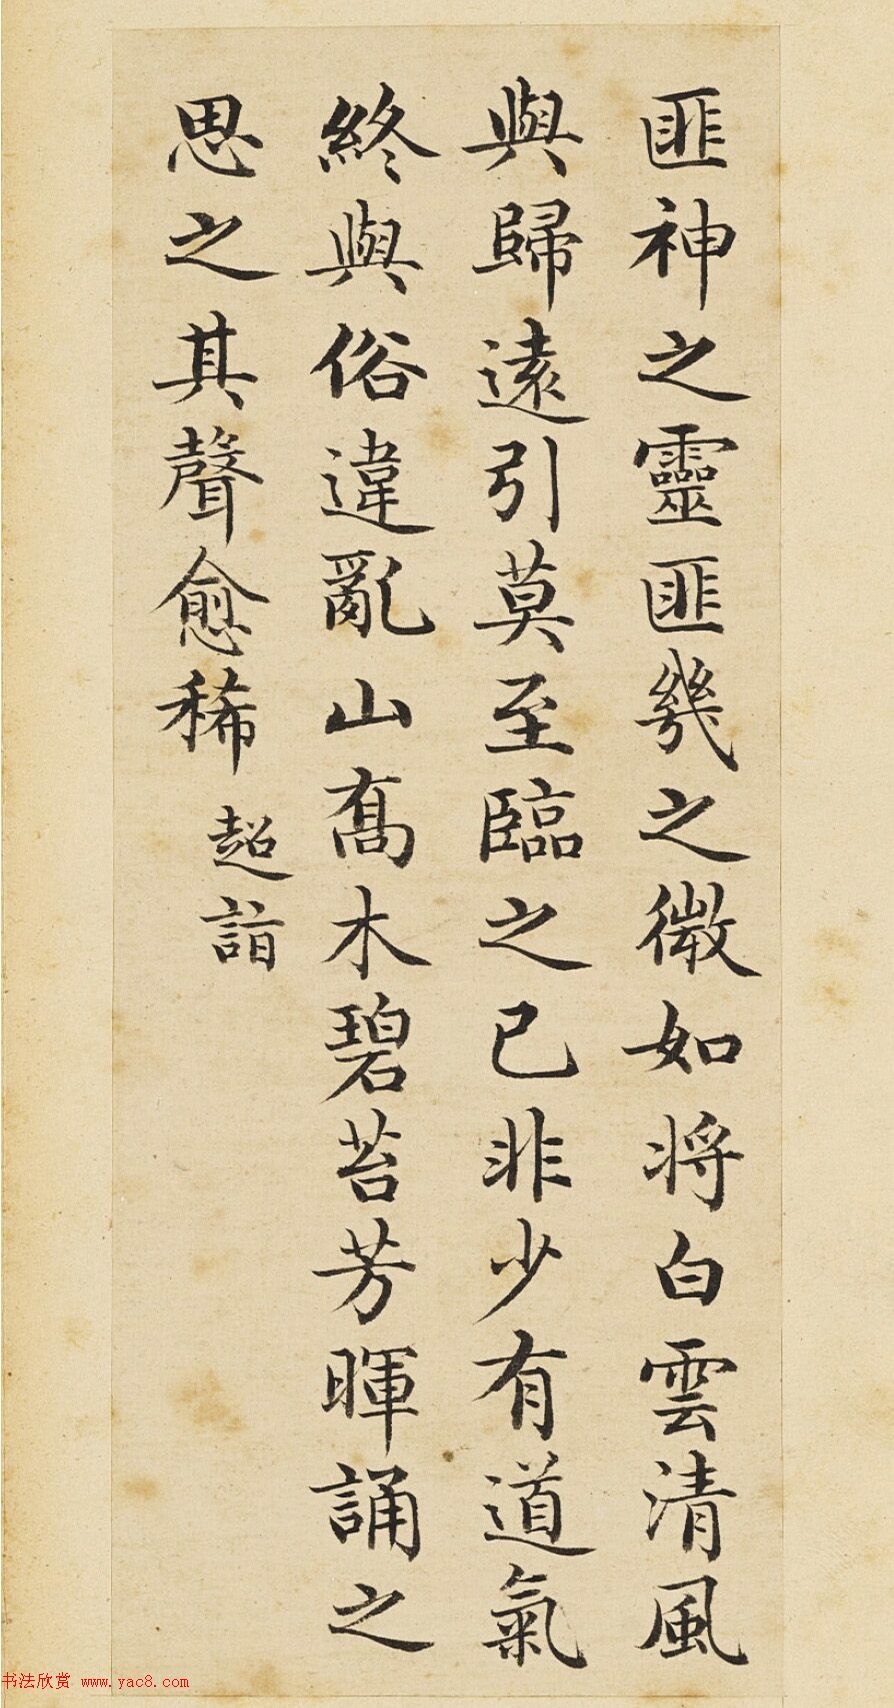 匪神之靈匪匪幾之微如將白雲清風
與歸遠引莫至臨之已非少有道氣
終與俗違亂山髙木碧苔芳暉誦之
思之其聲愈稀
超詣
书法欣赏 www.yac8.com